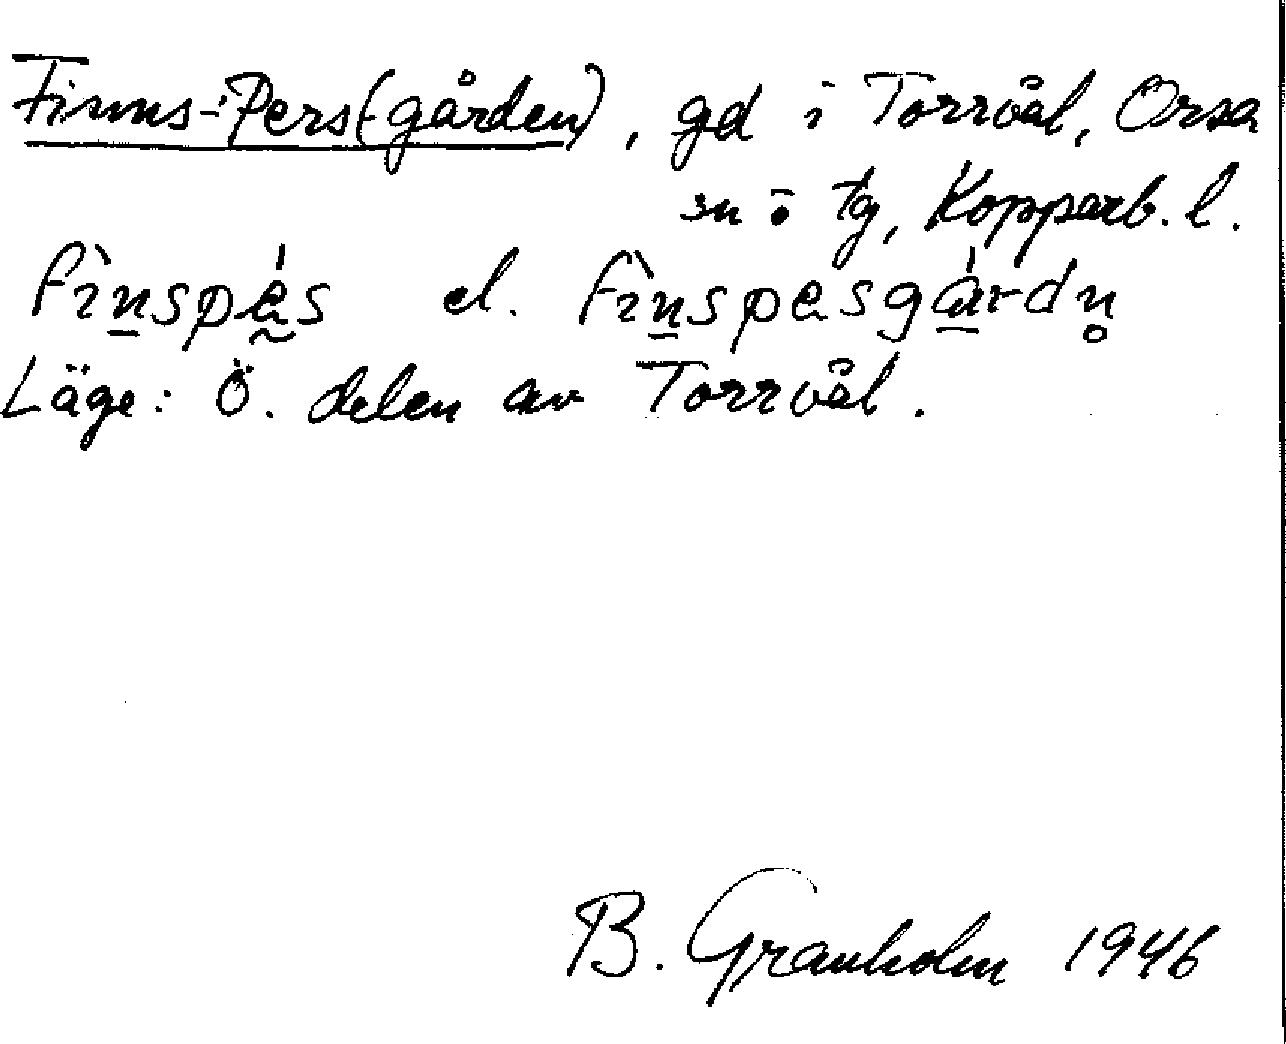 Finns-Pers(-gården), gd i Torrvål, Orsa
sn o tg, Kopparb. l.
fìn̲spḛ́s el. fìn̲spesgà̲rdn̥
Läge: Ö. delen av Torrvål.
B. Granholm 1946